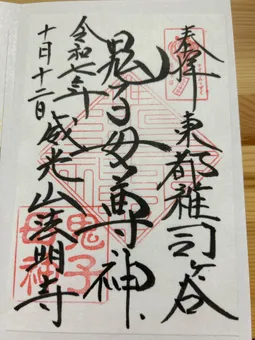 奉拝
東都雑司ヶ谷
鬼子母尊神
令和六年
十月十二日
威光山法明寺
鬼子
母神